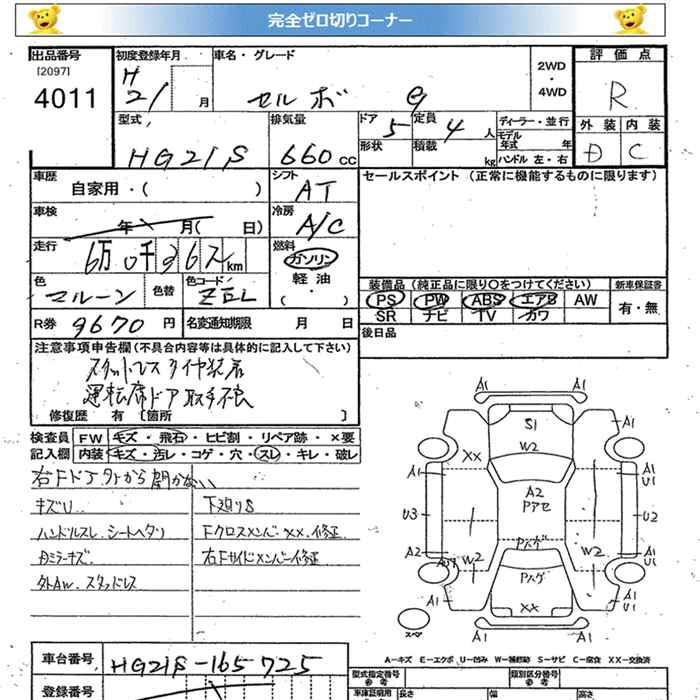 完全ゼロ切りコーナー
出品番号 初度登録年月 車名・グレード 2WD・4WD 評価点
[2097]
4011
H21 月 セルボ G R
型式 排気量 ドア 5 定員 4 人 ディーラー・並行 外装 内装
モデル年式 年
HG21S 660 CC 形状 積載 kg ハンドル 左・右 D C
車歴 シフト セールスポイント (正常に機能するものに限ります)
自家用・( ) AT
車検 冷房
年 月( 日) A/C
走行 燃料
6万0千 km ガソリン
軽油
・( )
色 色替 色コード 装備品 (純正品に限り○をつけてください) 新車保証書
マルーン ZEL PS PW ABS エアB AW 有・無
SR ナビ TV カワ
R券 9670 円 名変通知期限 月 日 後日品
注意事項申告欄 (不具合内容等は具体的に記入して下さい)
スタットレスタイヤ装着
運転席ドア取手不良
修復歴 有 [箇所 ]
検査員 FW キズ・飛石・ヒビ割・リペア跡・×要
記入欄 内装 キズ・汚レ・コゲ・穴・スレ・キレ・破レ
右Fドア外から開かない
キズU 下廻りS
ハンドルスレ、シートヘタリ Fクロスメンバー××、修正
内ミラーキズ 右Fサイドメンバー修正
外AW、スタッドレス
A1 A1
A1 S1 A1
W2
XX
A1 A1
U1
A2
Pアセ
U3 U2
Pハゲ
A2 W2 W2 A1
U1
Pハゲ
A1 XX A1
U1
スペア A1 A1
A-キズ E-エクボ U-凹み W-補修跡 S-サビ C-腐食 XX-交換済
車台番号 HG21S-165725
登録番号
型式指定番号 参考 類別区分番号 参考
車庫証明用 長さ 幅 高さ